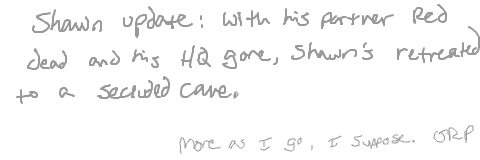 Shawn update: With his partner Red
dead and his HQ gone, Shawn's retreated
to a secluded cave.
More as I go, I suppose. ORP